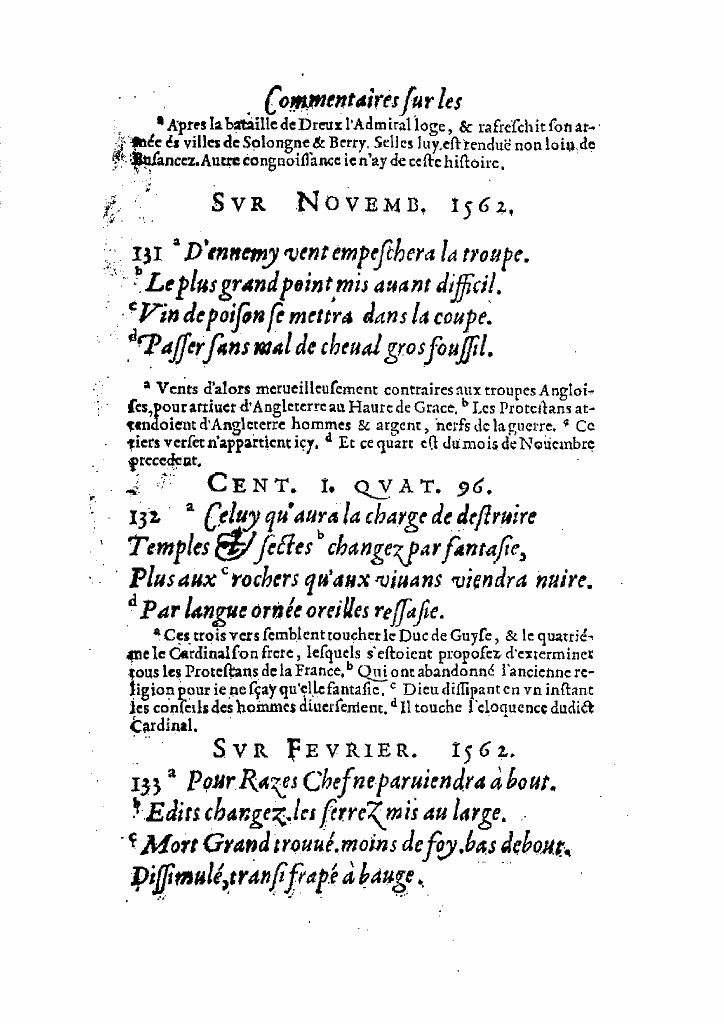 Commentaires ſur les
ª Apres la bataille de Dreux l'Admiral loge, & rafreſchit ſon ar-
mée és villes de Solongne & Berry. Selles luy eſt renduë non loin de
Buſancez. Autre congnoiſſance ie n'ay de ceſte hiſtoire.
SVR NOVEMB. 1562.
131 ª D'ennemy vent empeſchera la troupe.
ᵇ Le plus grand point mis auant difficil.
ᶜ Vin de poiſon ſe mettra dans la coupe.
ᵈ Paſſer ſans mal de cheual gros fouſſil.
ª Vents d'alors merueilleuſement contraires aux troupes Angloi-
ſes, pour arriuer d'Angleterre au Haure de Grace. ᵇ Les Proteſtans at-
tendoient d'Angleterre hommes & argent, nerfs de la guerre. ᶜ Ce
tiers verſet n'appartient icy. ᵈ Et ce quart eſt du mois de Nouembre
precedent.
CENT. I. QVAT. 96.
132 ª Celuy qu'aura la charge de deſtruire
Temples & ſectes ᵇ changez par fantaſie,
Plus aux ᶜ rochers qu'aux viuans viendra nuire.
ᵈ Par langue ornée oreilles reſſaſie.
ª Ces trois vers ſemblent toucher le Duc de Guyſe, & le quatrié-
me le Cardinal ſon frere, leſquels s'eſtoient propoſez d'exterminer
tous les Proteſtans de la France. ᵇ Qui ont abandonné l'ancienne re-
ligion pour ie ne ſçay qu'elle fantaſie. ᶜ Dieu diſſipant en vn inſtant
les conſeils des hommes diuerſement. ᵈ Il touche l'eloquence dudict
Cardinal.
SVR FEVRIER. 1562.
133 ª Pour Razes Chef ne paruiendra à bout.
ᵇ Edits changez. les ferrez mis au large.
ᶜ Mort Grand trouué. moins de foy. bas debout.
Diſſimulé, tranſi frapé à bauge.